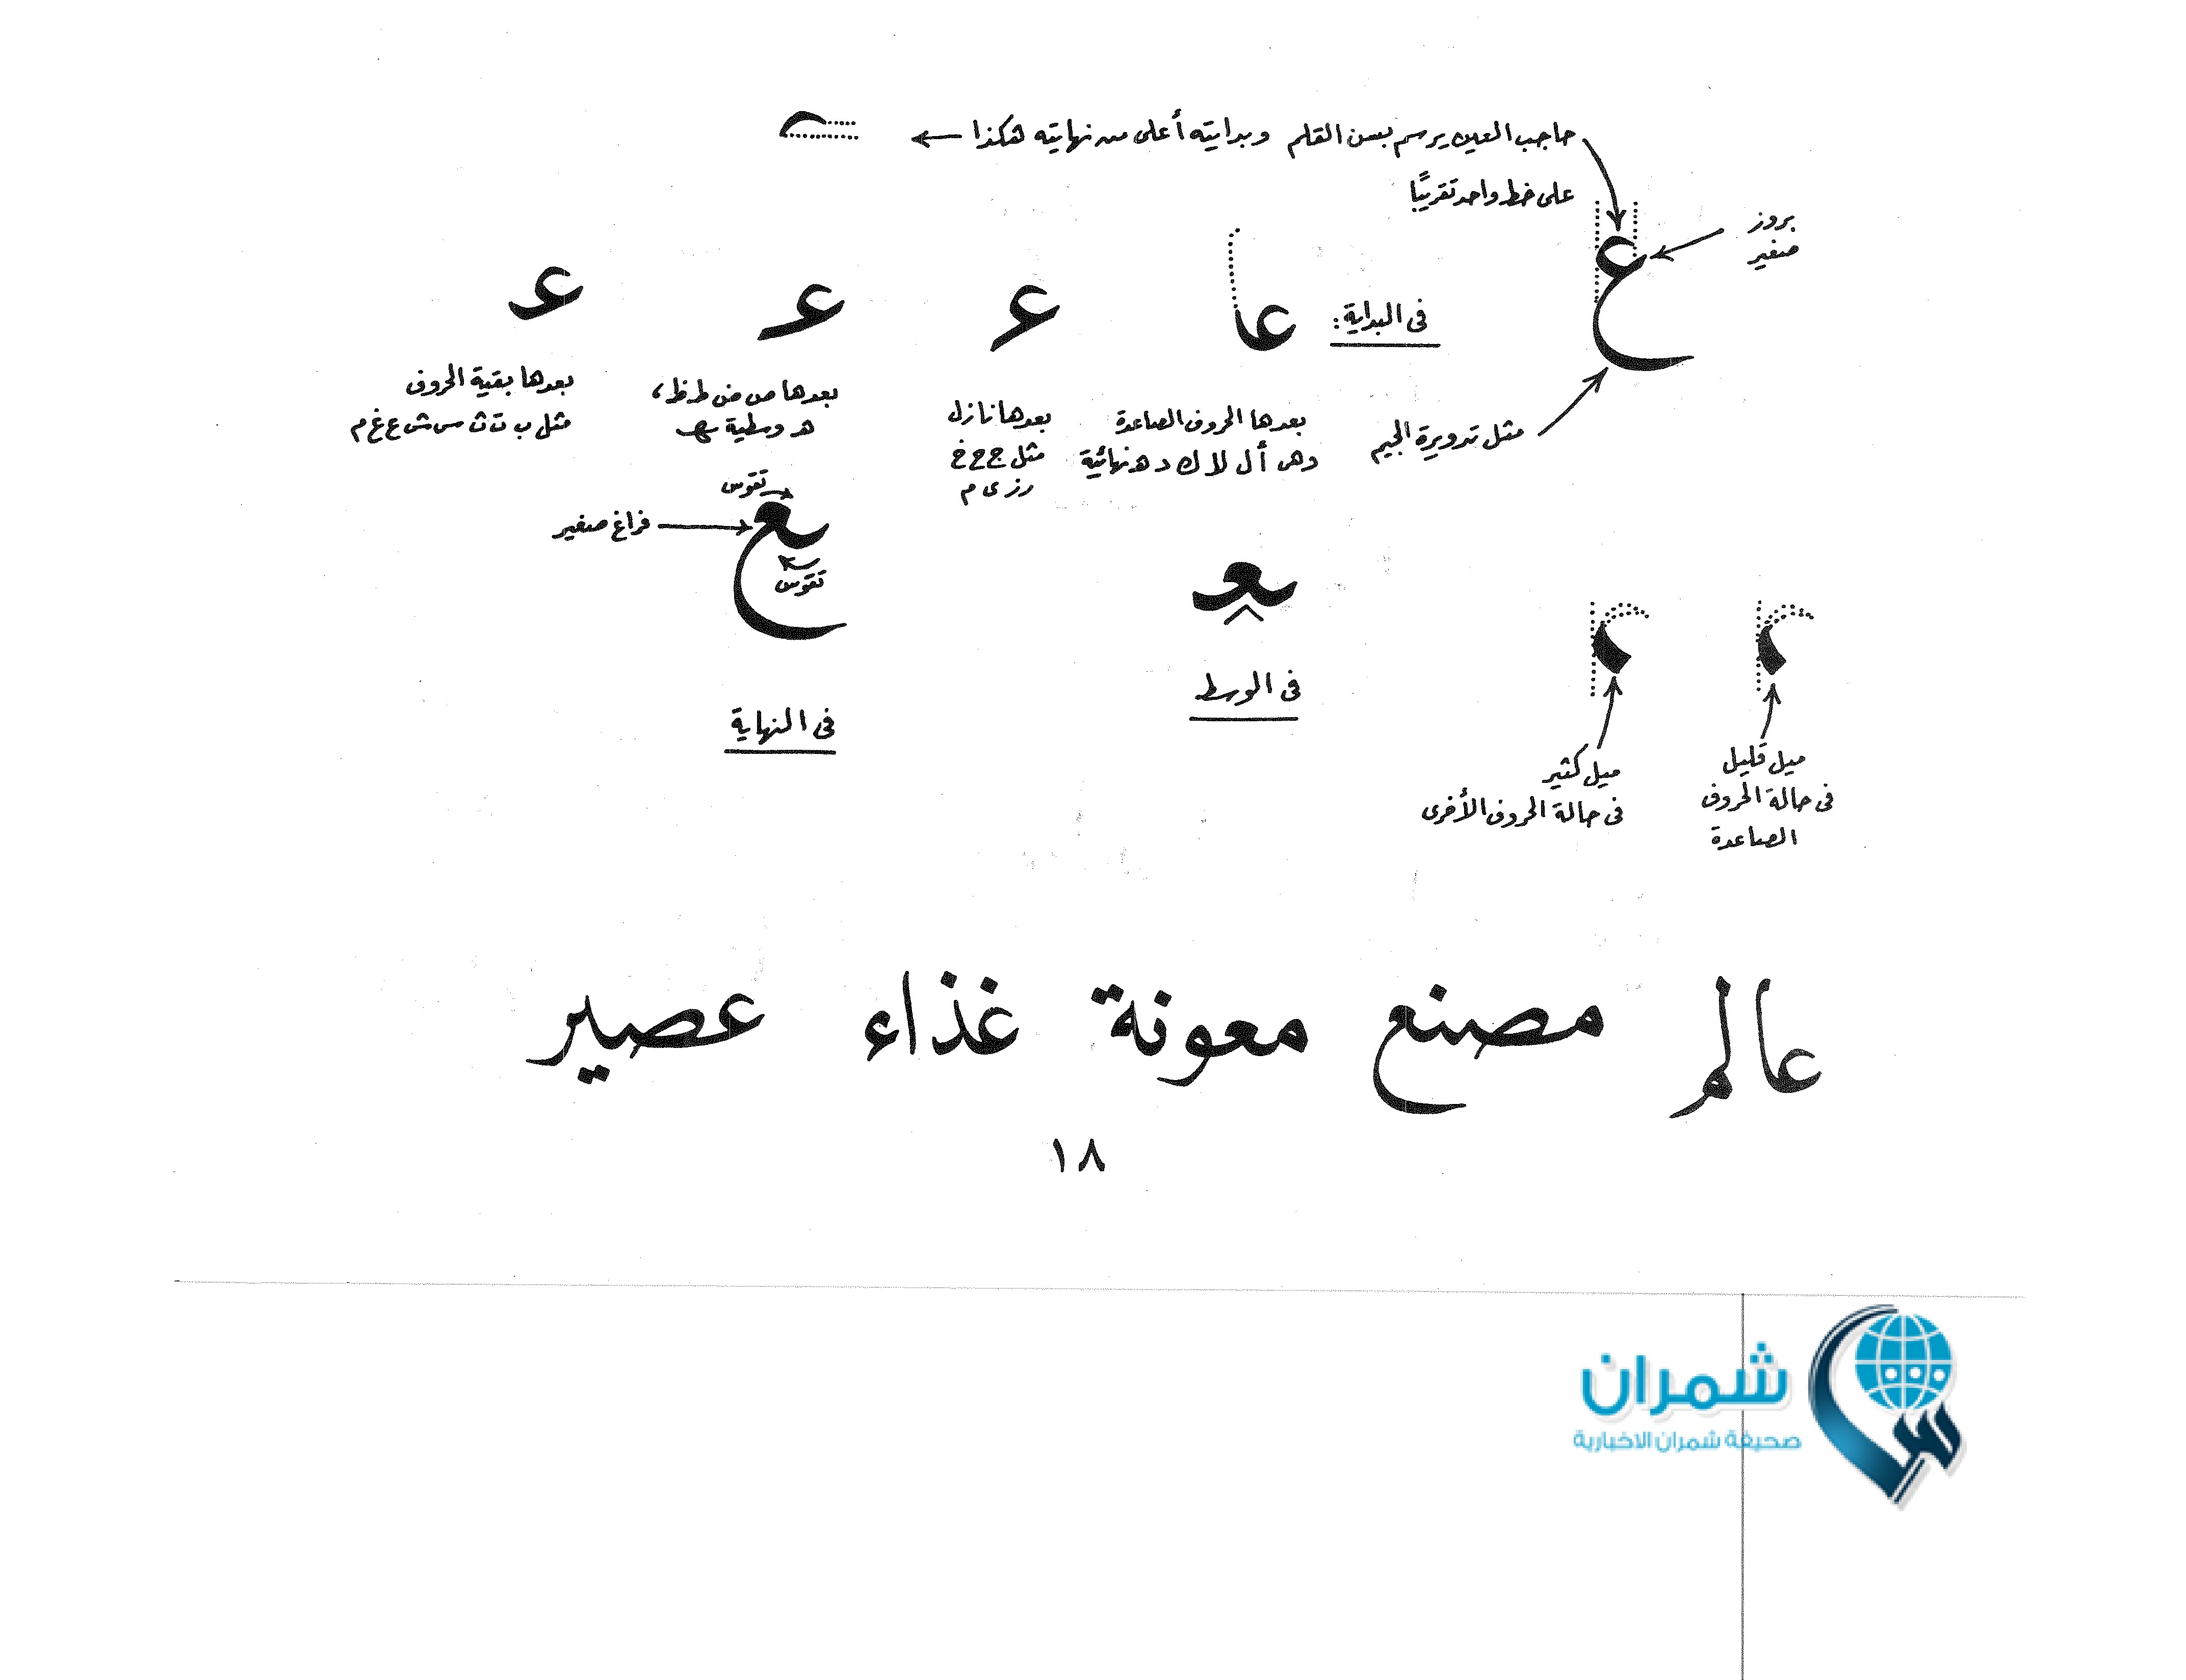 حاجب العين يرسم بسن القلم وبدايته أعلى من نهايته هكذا
على خط واحد تقريبًا
بروز
صغير
ع
مثل تدويرة الجيم
فى البداية:
عا
بعدها الحروف الصاعدة
وهى أ ل لا ك د ه نهائية
عـ
بعدها نازل
مثل ج ح خ
ر ز ى م
عـ
بعدها ص ض ط ظ،
هـ وسطية ـهـ
عـ
بعدها بقية الحروف
مثل ب ت ث س ش ع غ م
تقوس
فراغ صغير
ـع
تقوس
فى النهاية
ـعـ
فى الوسط
ميل قليل
فى حالة الحروف
الصاعدة
ميل كثير
فى حالة الحروف الأخرى
عالم مصنع معونة غذاء عصير
١٨
شمران
صحيفة شمران الاخبارية